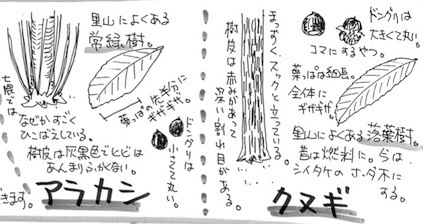 里山によくある
常緑樹。
葉っぱの先半分に
ギザギザ。
七隈では
なぜかすごく
ひこばえしている。
樹皮は灰黒色でヒビは
あんまりふかくない。
ドングリは
小さくて丸い。
きます。
アラカシ
ドングリは
大きくて丸。
コマにするやつ。
まっすぐ、スックと立っている。
樹皮は赤みがあって
深い割れ目がある。
葉っぱは細長。
全体に
ギザギザ。
里山によくある落葉樹。
昔は燃料に。今は
シイタケのホダ木に
する。
クヌギ